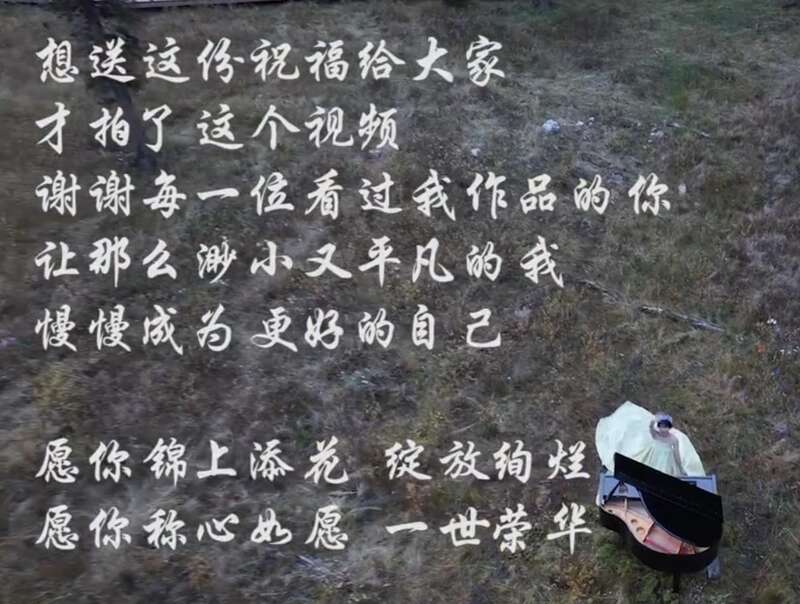 想送这份祝福给大家
才拍了这个视频
谢谢每一位看过我作品的你
让那么渺小又平凡的我
慢慢成为更好的自己
愿你锦上添花 绽放绚烂
愿你称心如愿 一世荣华